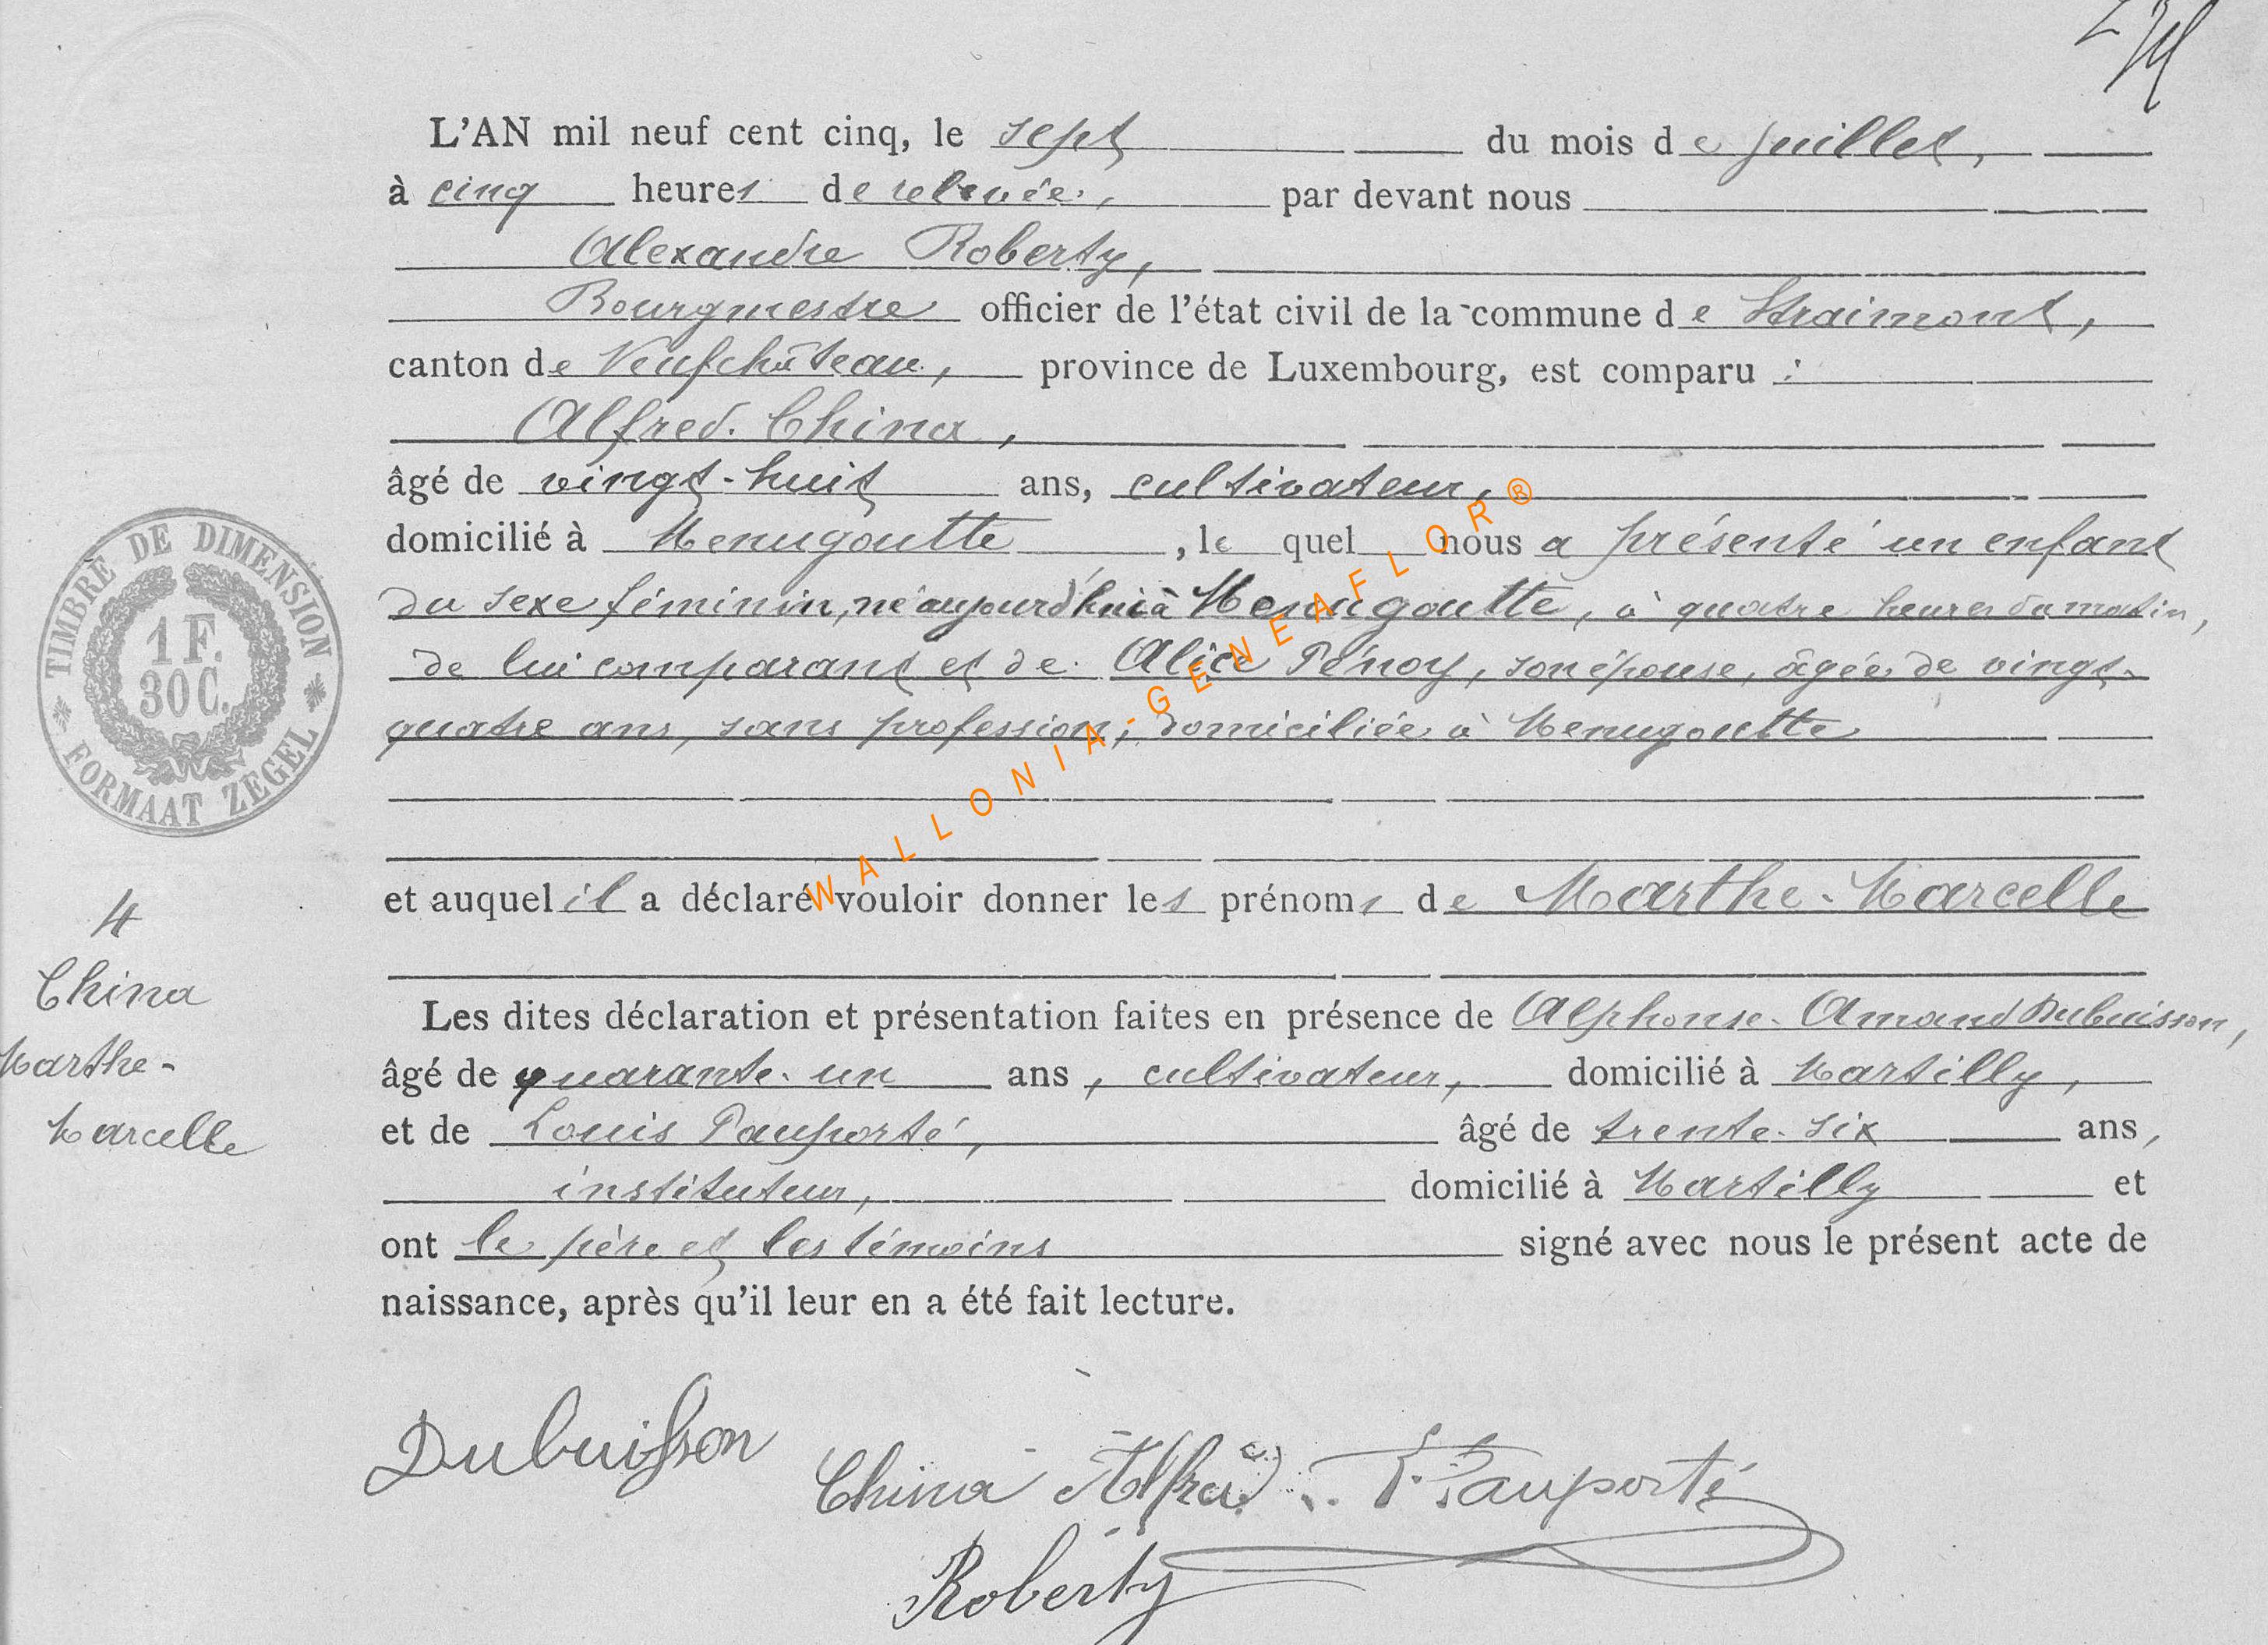 L'AN mil neuf cent cinq, le sept du mois de juillet,
à cinq heures de relevée, par devant nous
Alexandre Roberty,
Bourgmestre officier de l'état civil de la commune de Straimont,
canton de Neufchâteau, province de Luxembourg, est comparu :
Alfred China,
âgé de vingt-huit ans, cultivateur,
domicilié à Menugoutte, le quel nous a présenté un enfant
du sexe féminin, né aujourd'hui à Menugoutte, à quatre heures du matin,
de lui comparant et de Alice Pénoy, son épouse, âgée de vingt-
quatre ans, sans profession, domiciliée à Menugoutte
et auquel il a déclaré vouloir donner les prénoms de Marthe-Marcelle
Les dites déclaration et présentation faites en présence de Alphonse-Amand Dubuisson,
âgé de quarante-un ans, cultivateur, domicilié à Martilly,
et de Louis Pauporté, âgé de trente-six ans,
instituteur, domicilié à Martilly et
ont le père et les témoins signé avec nous le présent acte de
naissance, après qu'il leur en a été fait lecture.
Dubuisson
China Alfred
Pauporté
Roberty
TIMBRE DE DIMENSION
1 F.
30 C.
FORMAAT ZEGEL
4
China
Marthe-
Marcelle
WALLONIA-GENEAFLOR®